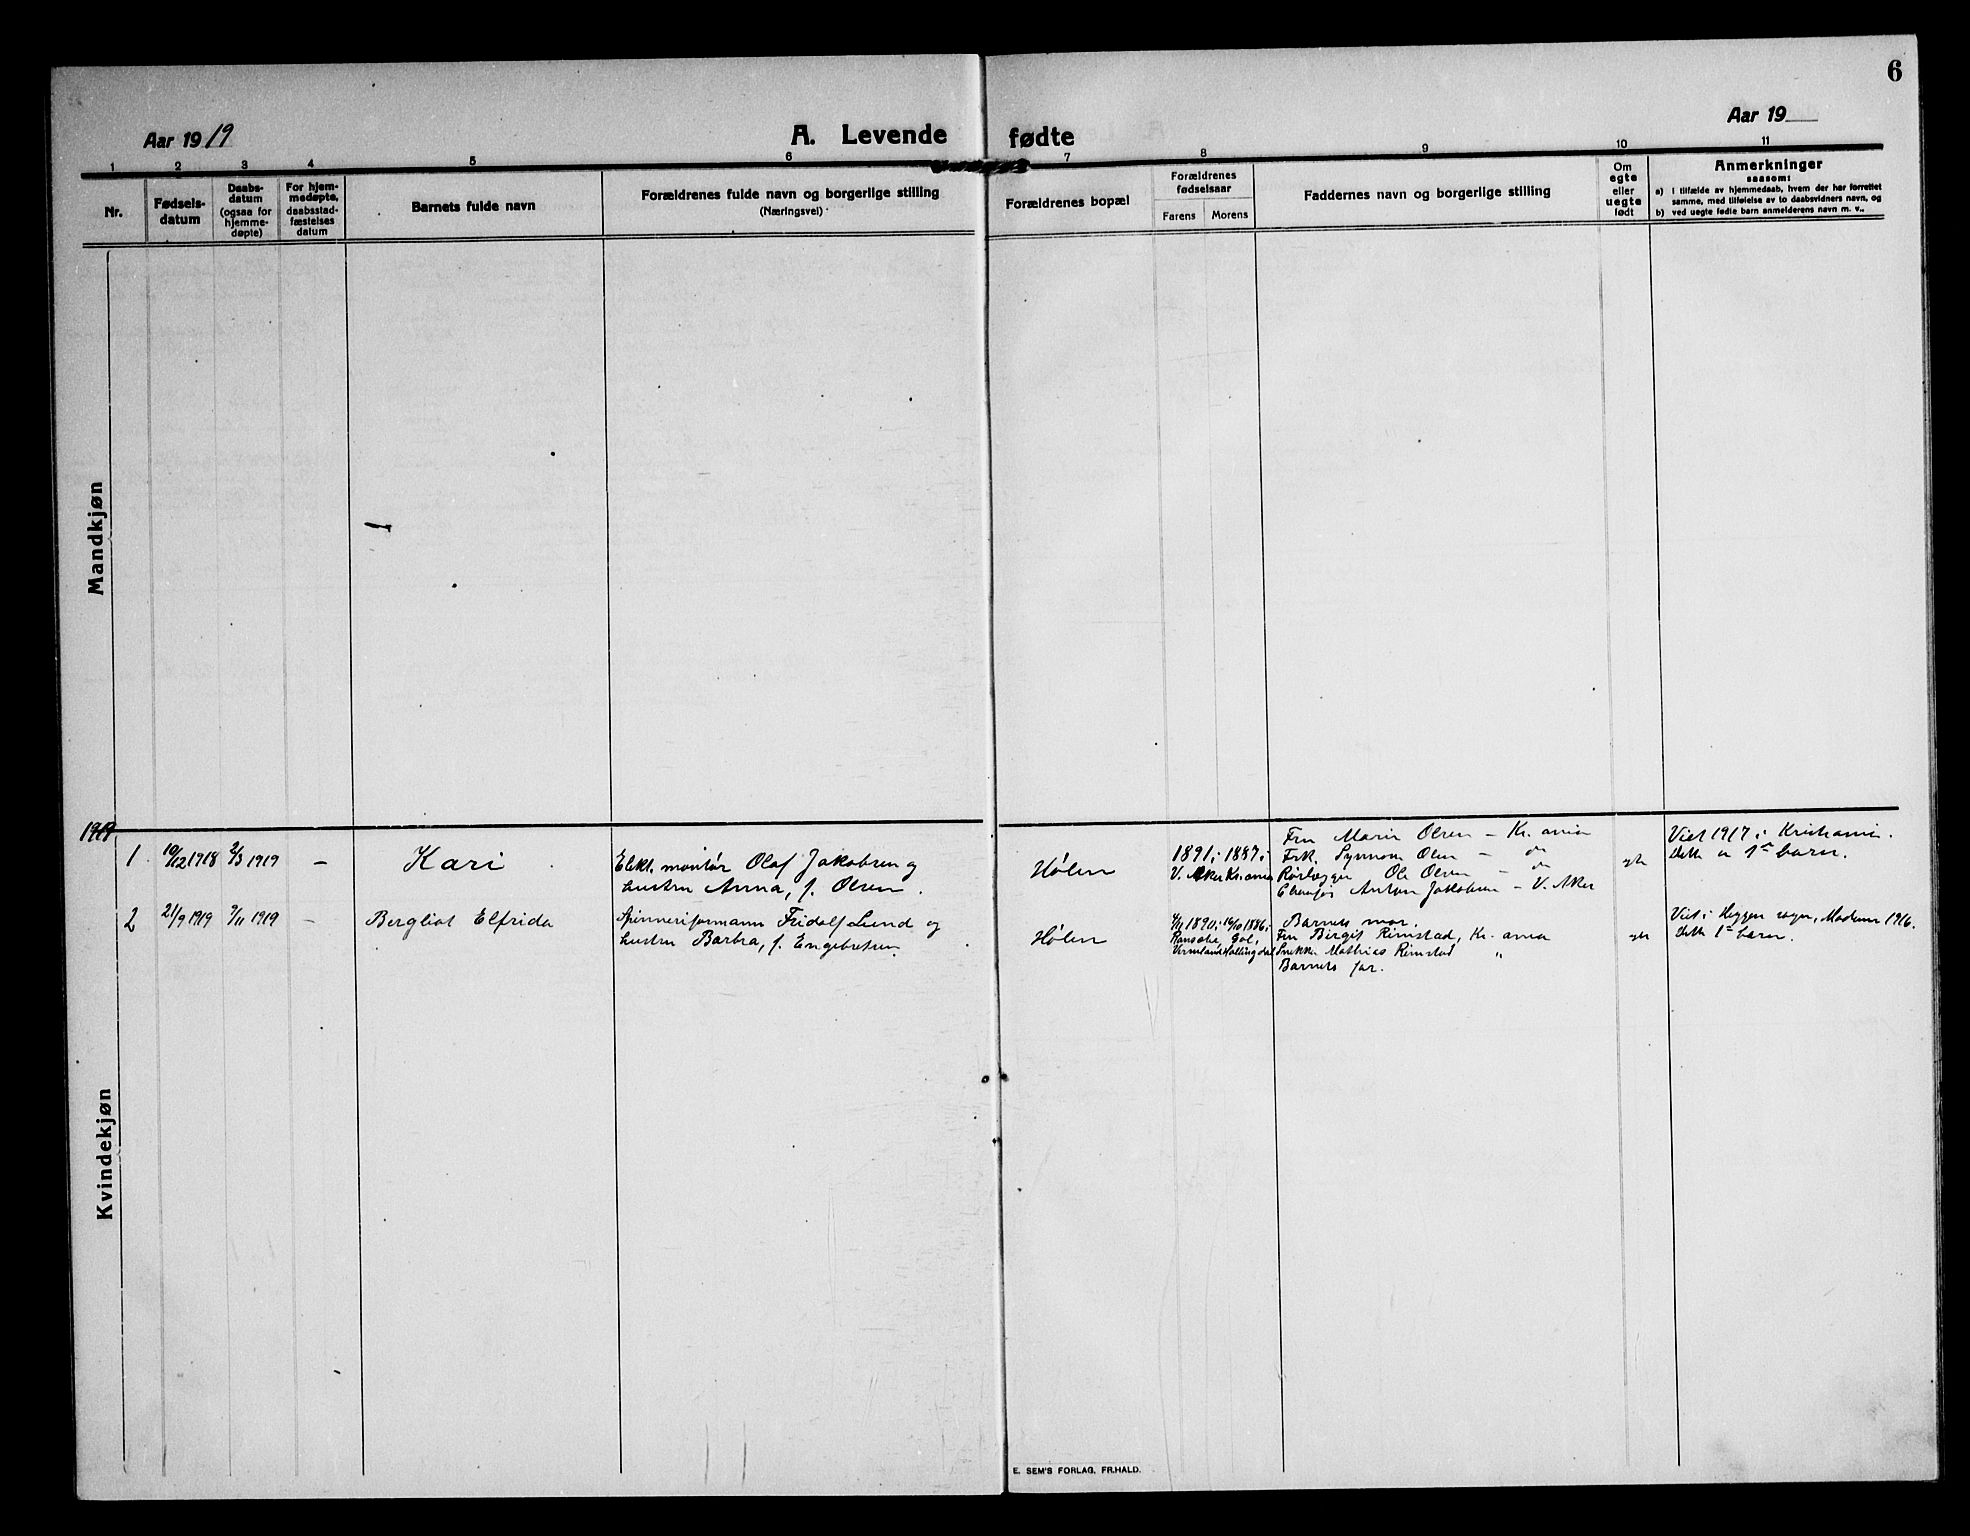 6
Aar 1919
A. Levende fødte
Aar 19
1 2 3 4 5 6 7 8 9 10 11
Nr.
Fødsels-
datum
Daabs-
datum
(ogsaa for
hjemme-
døpte)
For hjem-
medøpte,
daabsstad-
fæstelses
datum
Barnets fulde navn
Forældrenes fulde navn og borgerlige stilling
(Næringsvei)
Forældrenes bopæl
Forældrenes
fødselsaar
Farens Morens
Faddernes navn og borgerlige stilling
Om
egte
eller
uegte
født
Anmerkninger
saasom:
a) i tilfælde av hjemmedaab, hvem der har forrettet
samme, med tilføielse av to daabsvidners navn, og
b) ved uegte fødte barn anmelderens navn m. v.,
Mandkjøn
1919
Kvindekjøn
1 10/12 1918 2/3 1919 –
Kari
Elekt. montør Olaf Jakobsen og
hustru Anna, f. Olsen.
Hølen
1891; 1887;
V. Aker Kr.ania
Fru Marie Olsen – Kr. ania
Frk. Synnøve Olsen – do
Rørlægger Ole Olsen – do
Anton Jakobsen – V. Aker
egte
Viet 1917 i Kristiania.
Dette er 1ste barn.
2 21/9 1919 9/11 1919 –
Bergliot Elfrida
Spinneriformann Fridolf Lund og
hustru Barbra, f. Engebretsen.
Hølen
1890; 16/10 1886;
Gol,
Vermland Hallingdal
Barnets mor.
Fru Birgit Rimstad, Kr. ania
Snekker Mathias Rimstad "
Barnets far.
egte
Viet i Heggen sogn, Modum 1916.
Dette 1ste barn.
E. SEM'S FORLAG, FR.HALD.